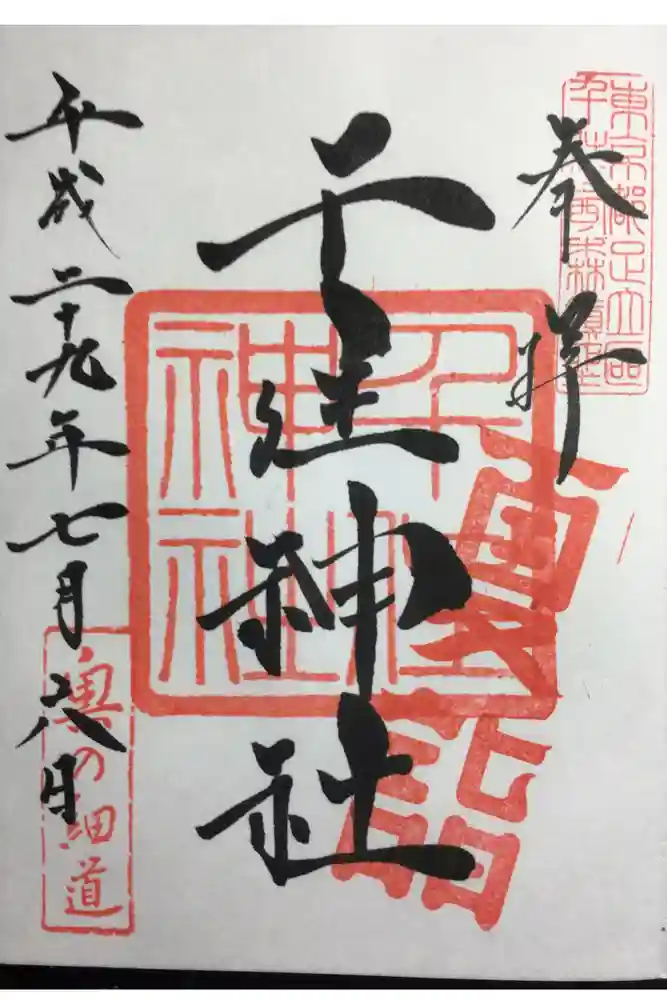 東京都足立区
千住西森鎮座
奉拝
千住神社
千住
神社
夏詣
平成二十九年七月六日
奥の細道